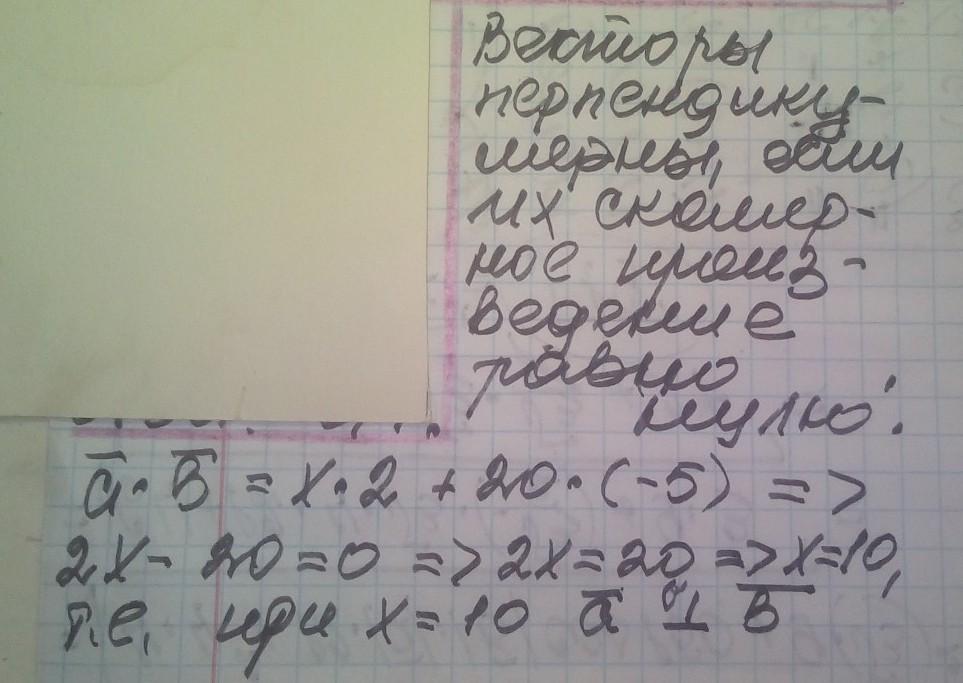 Векторы
перпендику-
лярны, если
их скаляр-
ное произ-
ведение
равно
нулю:
a̅·b̅ = x·2 + 20·(-5) =>
2x - 20 = 0 => 2x = 20 => x = 10,
т.е. при x = 10 a̅ ⊥ b̅